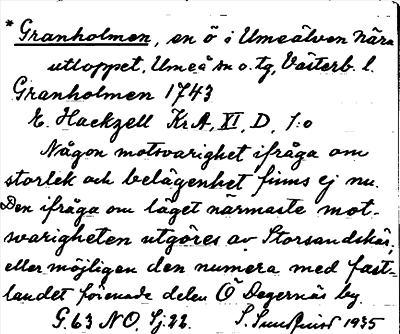 * Granholmen, en ö i Umeälven nära
utloppet, Umeå sn o. tg, Västerb. l.
Granholmen 1743
E. Hackzell KrA, XI, D, 1:o
Någon motsvarighet ifråga om
storlek och belägenhet finns ej nu.
Den ifråga om läget närmaste mot-
svarigheten utgöres av Storsandskär,
eller möjligen den numera med fast-
landet förenade delen Ö Degernäs by.
G. 63 NO, Sj. 22. 1935